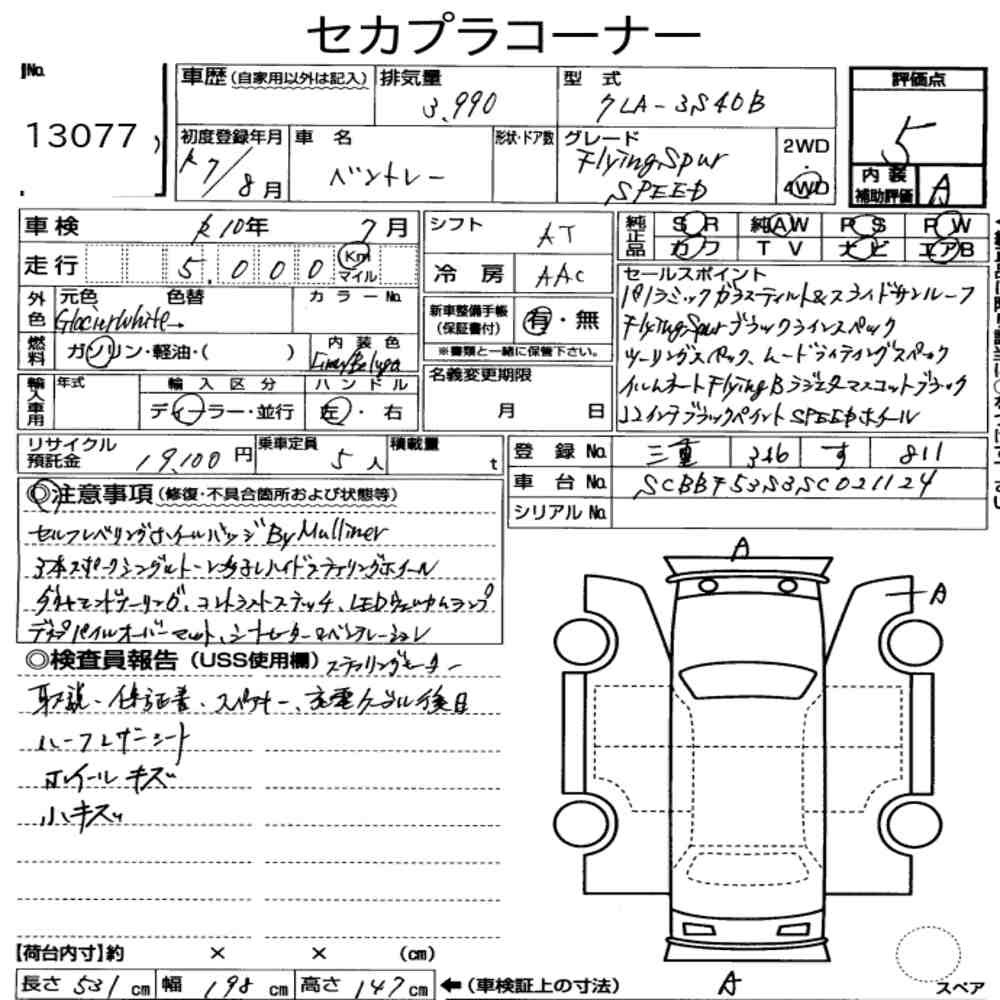 セカプラコーナー
No. 13077
車歴（自家用以外は記入） 排気量 3,990 型式 7LA-3S40B 評価点 5
初度登録年月 R7/8月 車名 ベントレー 形状・ドア数 グレード Flying Spur SPEED 2WD 4WD 内装補助評価 A
車検 R10年 7月 シフト AT 純正品 SR 純AW PS PW
カワ TV ナビ エアB
走行 5,000 Km マイル 冷房 AAC
外色 元色 色替 カラーNo. Glacier White
新車整備手帳（保証書付） 有・無
※書類と一緒に保管下さい。
燃料 ガソリン・軽油・（ ） 内装色 Linen/Beluga
輸入車用 年式 輸入区分 ハンドル
ディーラー・並行 左・右
名義変更期限 月 日
セールスポイント
パノラミックガラスティルト&スライドサンルーフ
Flying Spur ブラックラインスペック
ツーリングスペック、ムードライティングスペック
イルムオートFlying Bラジエターマスコットブラック
22インチブラックペイントSPEEDホイール
リサイクル預託金 19,100円 乗車定員 5人 積載量 t
登録No. 三重 346 す 811
車台No. SCBBF53S3SC021124
シリアルNo.
◎注意事項（修復・不具合箇所および状態等）
セルフレベリングホイールバッジ By Mulliner
3本スポークシングルトーン ハイドステアリングホイール
ダイヤモンドキルティング、コントラストステッチ、LEDウェルカムランプ
ディープパイルオーバーマット、シートヒーター&ベンチレーション
◎検査員報告（USS使用欄） ステアリングヒーター
取説・保証書・スペアキー、充電ケーブル後日
ハーフレザーシート
ホイールキズ
小キズ
A
A
A
【荷台内寸】約 × × （cm）
長さ 531 cm 幅 198 cm 高さ 147 cm ←（車検証上の寸法）
スペア